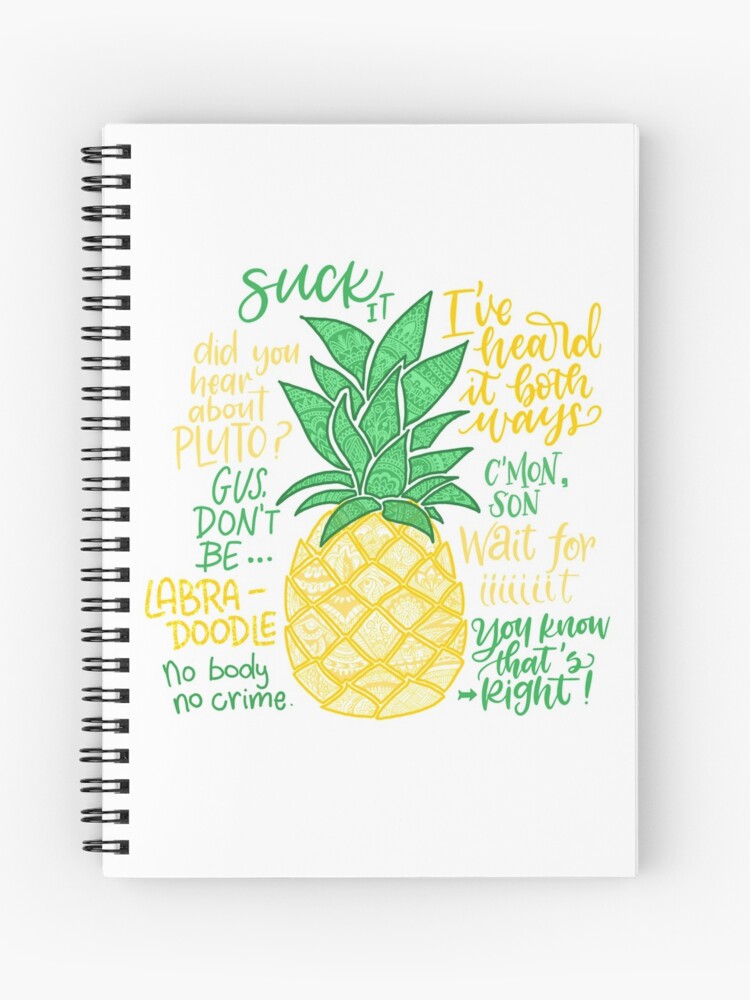 suck
IT
did you
hear
about
PLUTO?
GUS,
DON'T
BE...
LABRA-
DOODLE
No body
no crime.
I've
heard
it both
ways
C'MON,
SON
Wait for
iiiiiiit
You know
that's
Right!